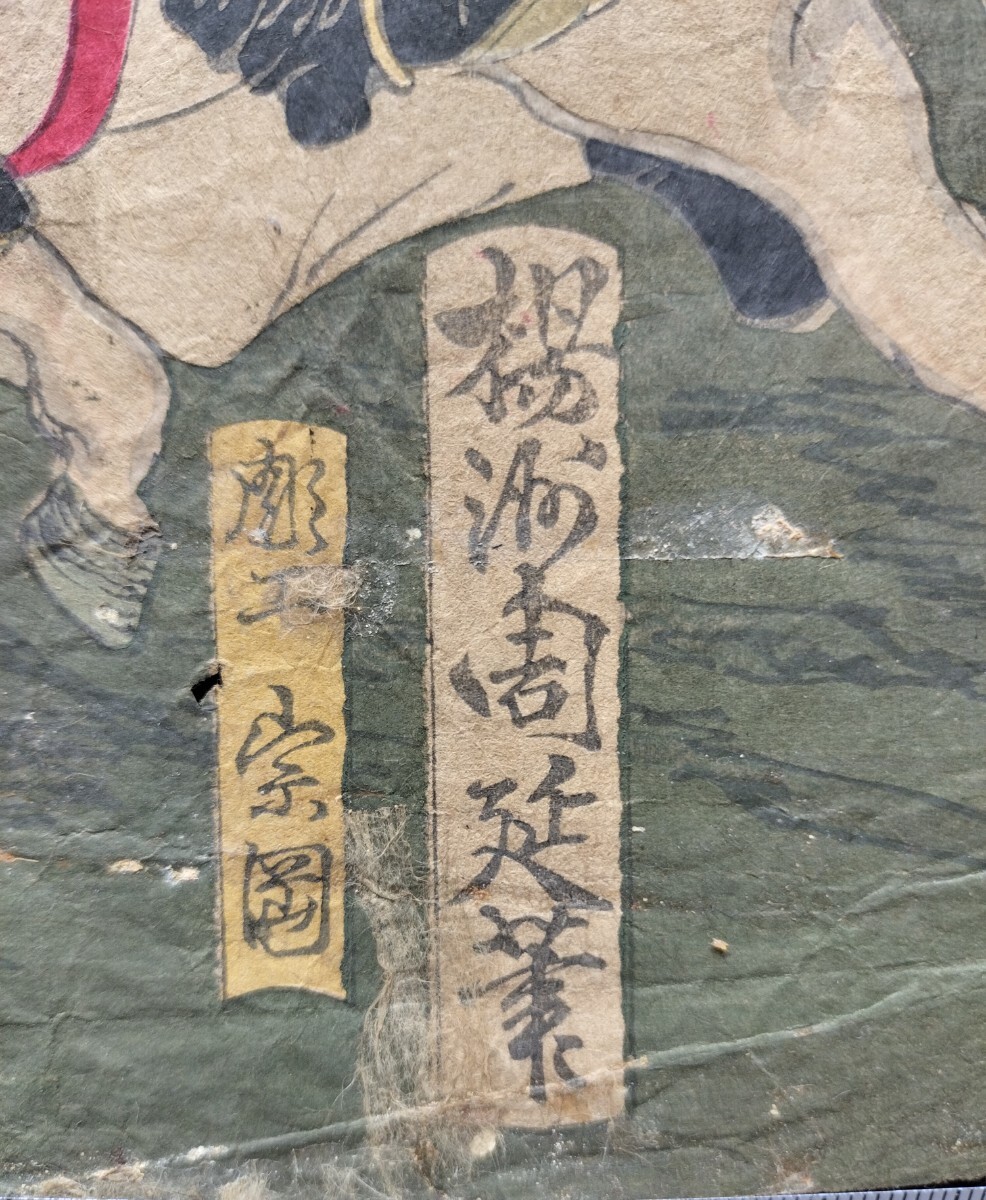 楊洲周延筆
彫工 宗岡